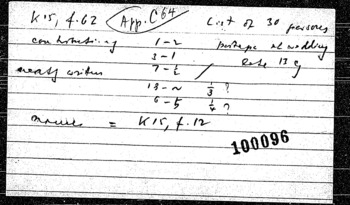 K15, f.62 App. C 64 List of 30 persons
contributing 1 – 2 perhaps at wedding
3 – 1 Date 13 c
neatly written 7 – ½
13 – ~ ⅓ ?
6 – 5 ¼ ?
= K15, f.12
100096